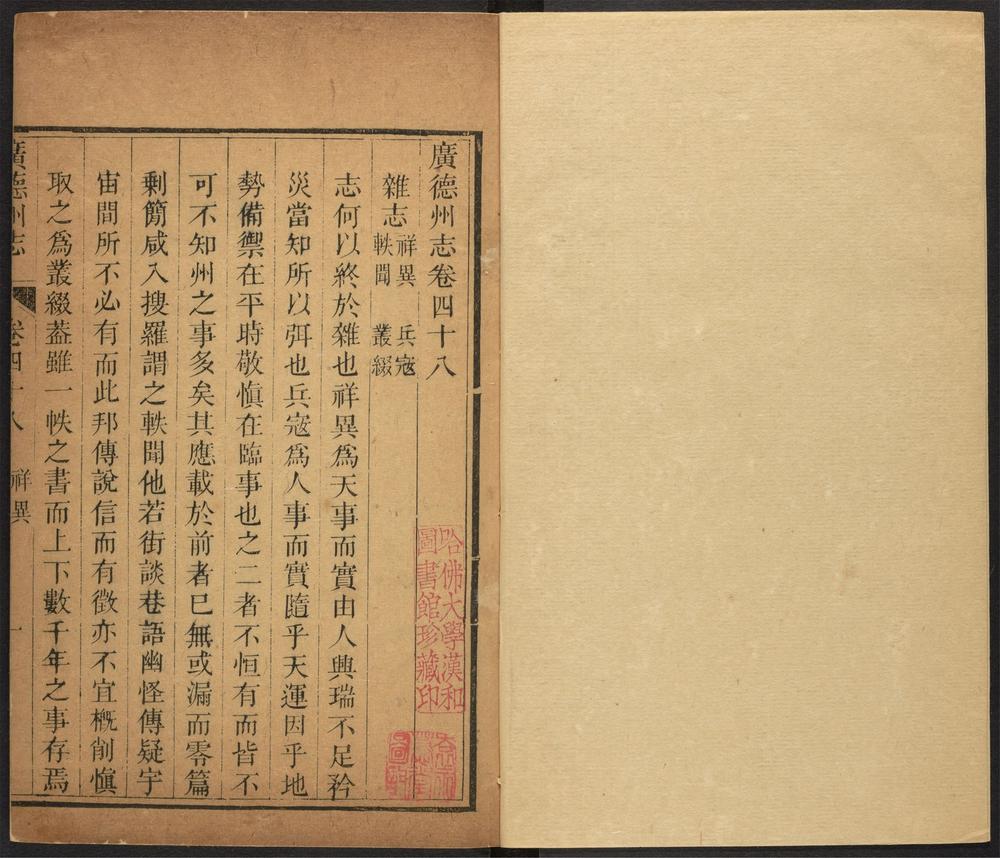 廣德州志卷四十八
雜志 祥異 兵寇
軼聞 叢綴
志何以終於雜也祥異爲天事而實由人興瑞不足矜
災當知所以弭也兵寇爲人事而實隨乎天運因乎地
勢備禦在平時敬愼在臨事也之二者不恒有而皆不
可不知州之事多矣其應載於前者已無或漏而零篇
剩簡咸入搜羅謂之軼聞他若街談巷語幽怪傳疑宇
宙間所不必有而此邦傳說信而有徵亦不宜概削愼
取之爲叢綴葢雖一帙之書而上下數千年之事存焉
廣德州志 卷四十八 祥異 一
哈佛大學漢和
圖書館珍藏印